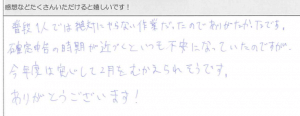 感想などたくさんいただけると嬉しいです！
普段1人では絶対にやらない作業だったのでありがたかったです。
確定申告の時期が近づくといつも下痢になっていたのですが、
今年度は安心して2月をむかえられそうです。
ありがとうございます！